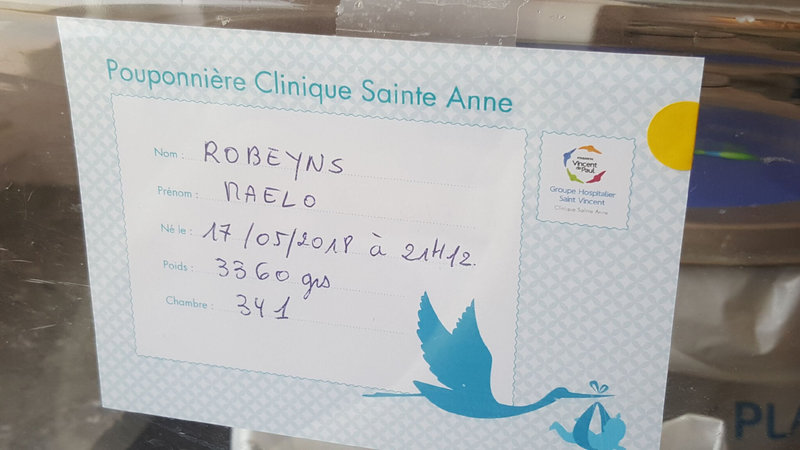 Pouponnière Clinique Sainte Anne
Nom : ROBEYNS
Prénom : MAELO
Né le : 17/05/2018 à 21H12.
Poids : 3360 grs
Chambre : 341
FONDATION
Vincent
de Paul
Groupe Hospitalier
Saint Vincent
Clinique Sainte Anne
PLA